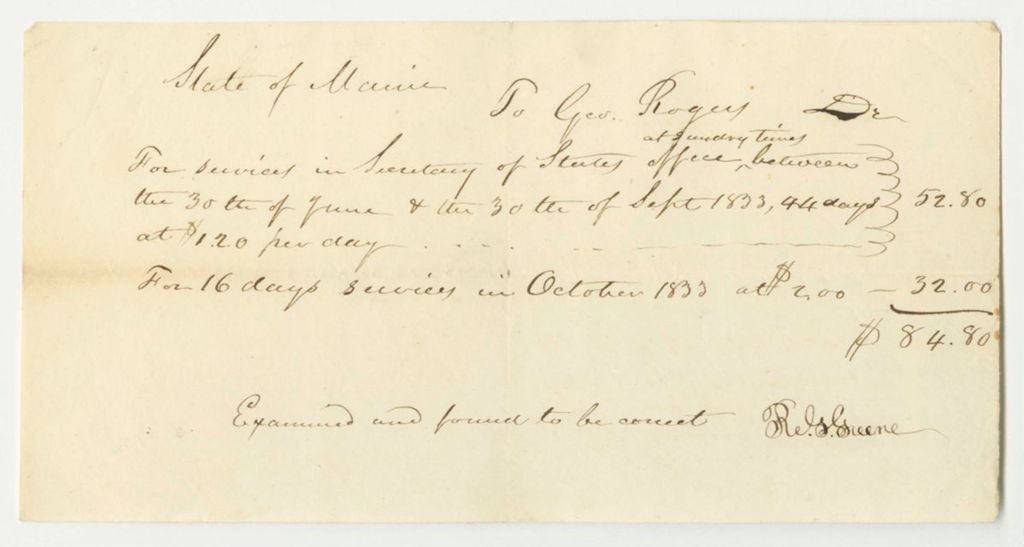 State of Maine
To Geo. Rogers Dr
at sundry times
For services in Secretary of States office, between
the 30th of June & the 30th of Sept 1833, 44 days 52.80
at $1.20 per day
For 16 days services in October 1833 at $2,00 — 32.00
$ 84.80
Examined and found to be correct R. G. Greene